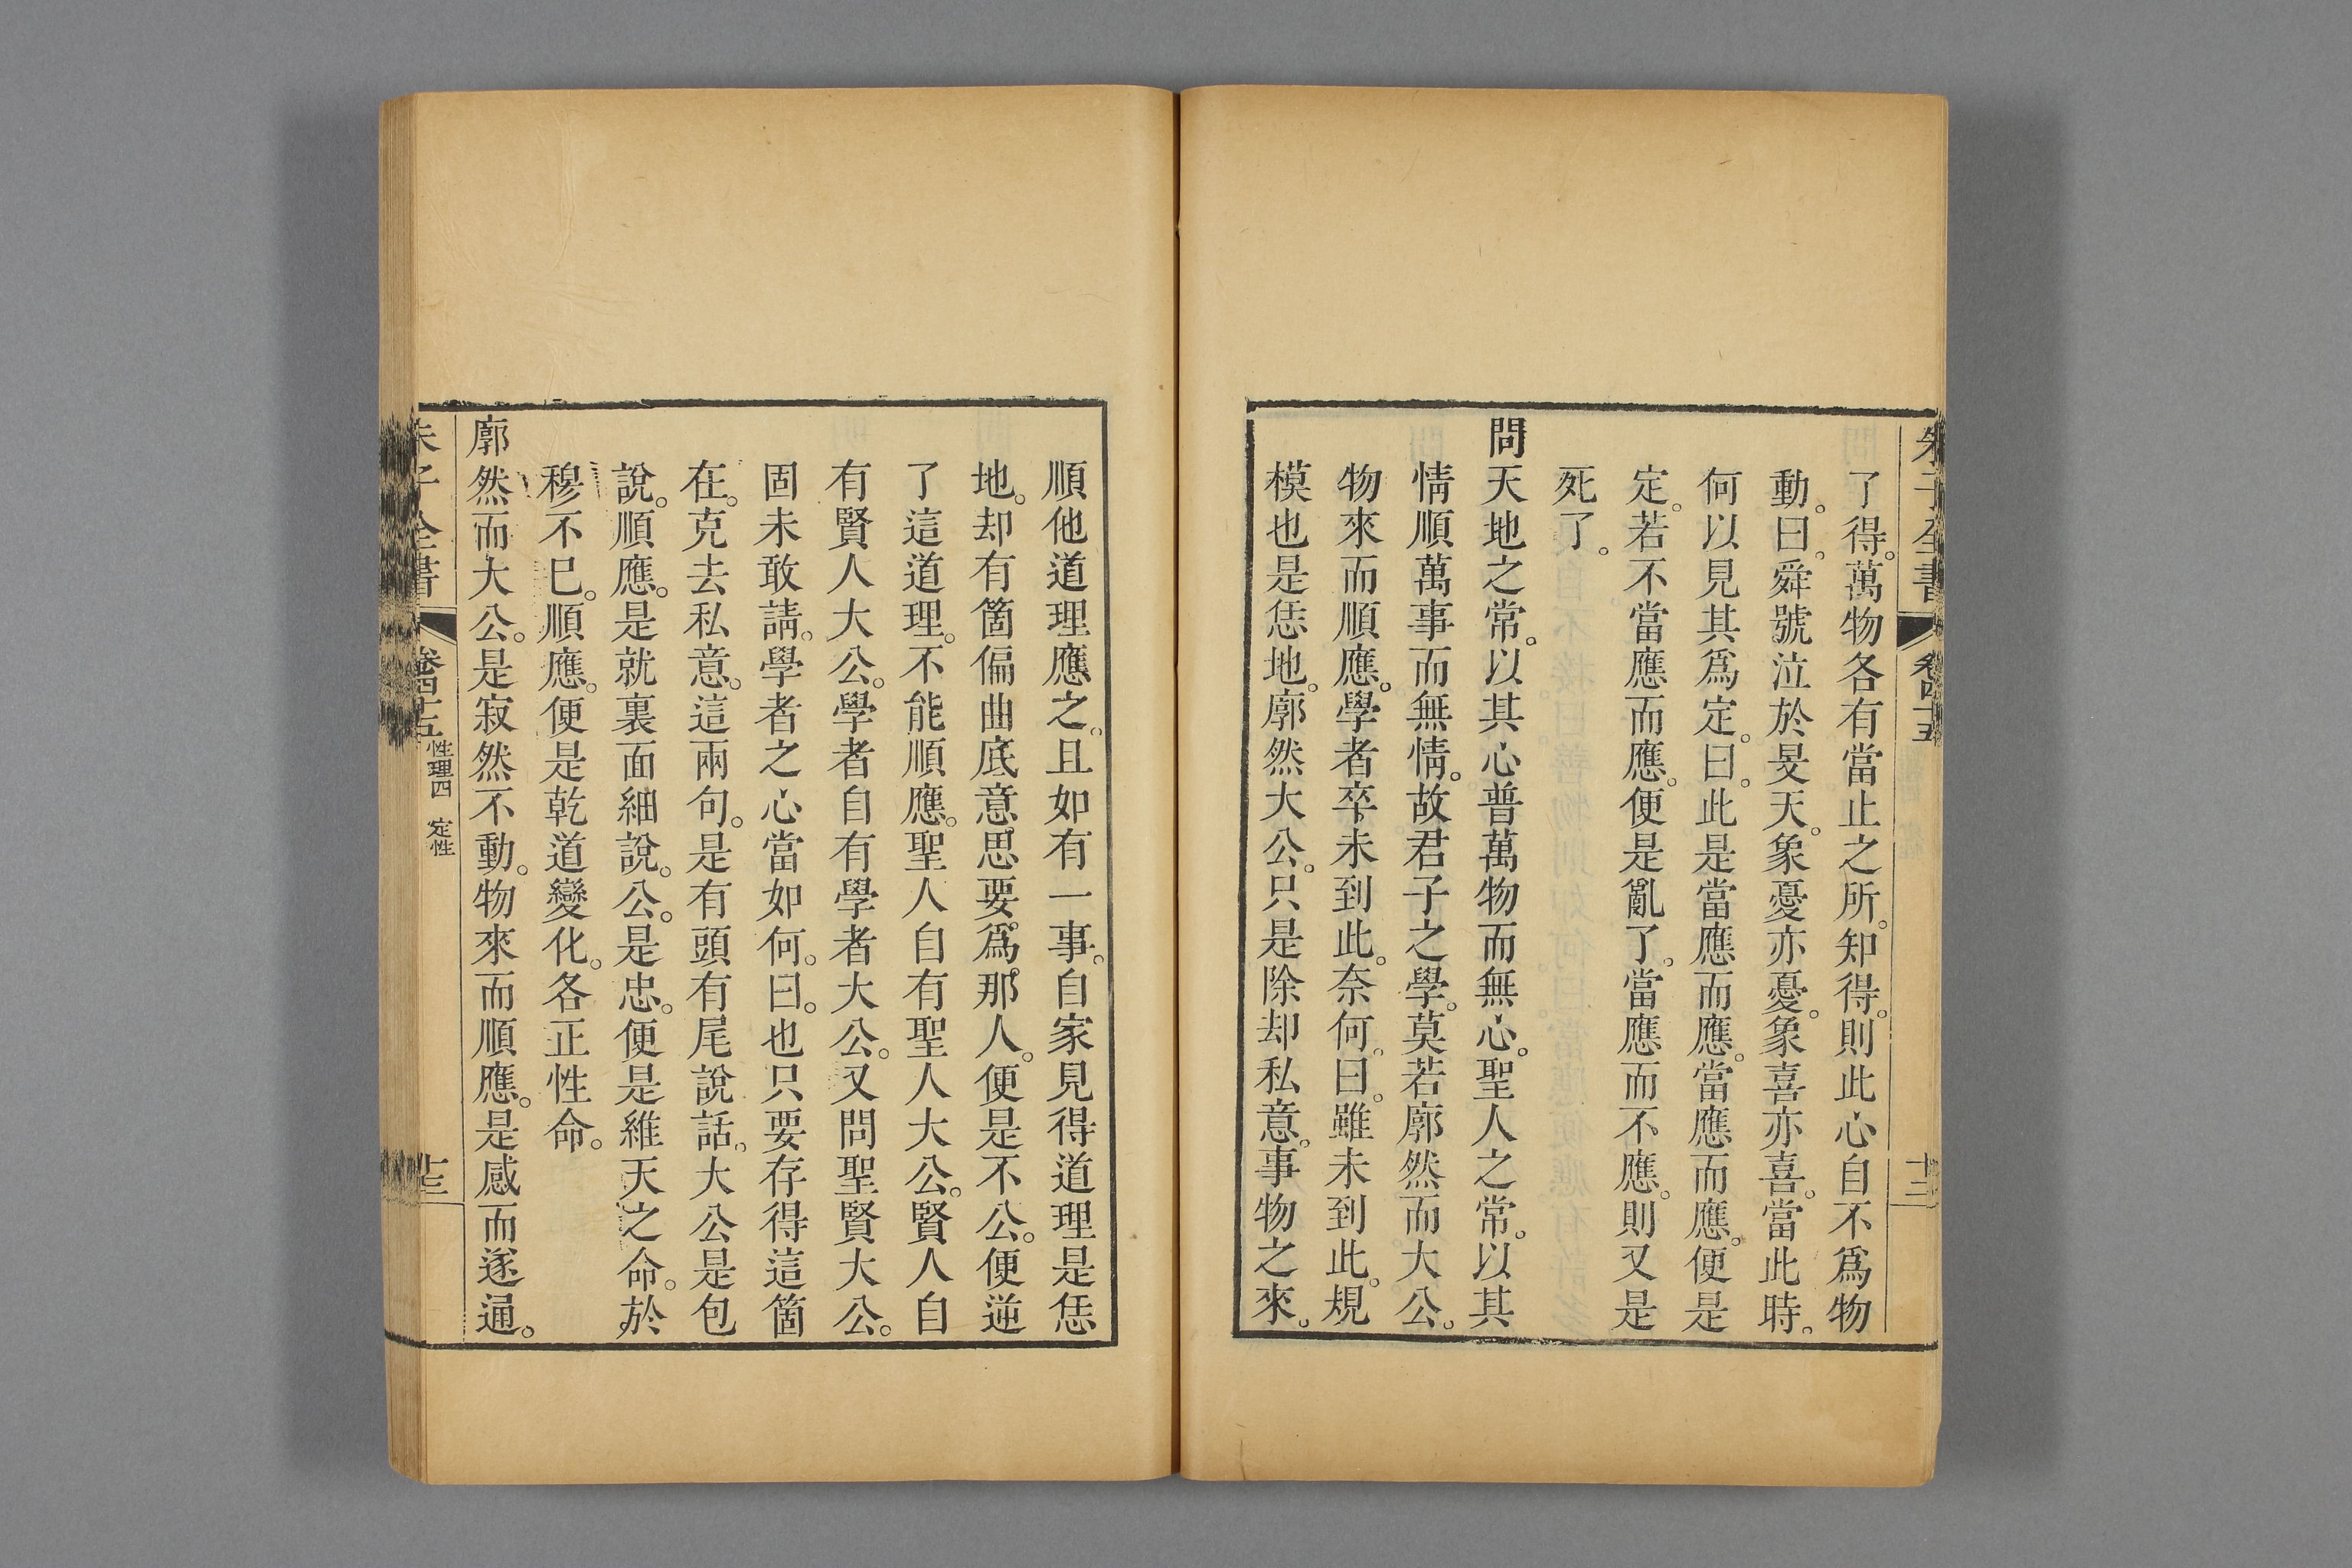 朱子全書 卷四十五 十二
了得。萬物各有當止之所。知得。則此心自不爲物
動。曰。舜號泣於旻天。象憂亦憂。象喜亦喜。當此時。
何以見其爲定。曰。此是當應而應。當應而應。便是
定。若不當應而應。便是亂了。當應而不應。則又是
死了。
問天地之常。以其心普萬物而無心。聖人之常。以其
情順萬事而無情。故君子之學。莫若廓然而大公。
物來而順應。學者卒未到此。奈何。曰。雖未到此。規
模也是恁地。廓然大公。只是除却私意。事物之來。
順他道理應之。且如有一事。自家見得道理是恁
地。却有箇偏曲底意思。要爲那人。便是不公。便逆
了這道理。不能順應。聖人自有聖人大公。賢人自
有賢人大公。學者自有學者大公。又問聖賢大公。
固未敢請。學者之心當如何。曰。也只要存得這箇
在。克去私意。這兩句。是有頭有尾說話。大公是包
說。順應。是就裏面細說。公。是忠。便是維天之命。於
穆不已。順應。便是乾道變化。各正性命。
廓然而大公。是寂然不動。物來而順應。是感而遂通。
朱子全書 卷四十五 性理四 定性 十三